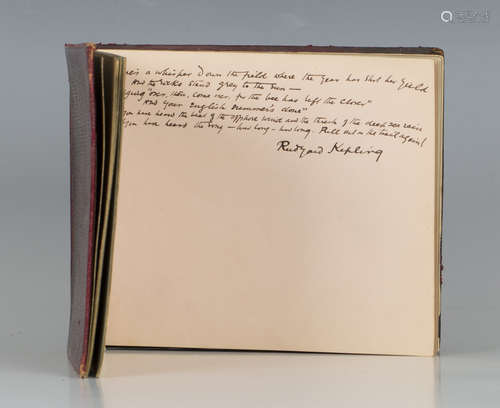 re's a whisper down the field where the year has shot her yield
And the ricks stand grey to the sun —
nging "over, then, come over, for the bee has left the clover"
"And your English summer's done"
you have heard the beat of the offshore wind and the thresh of the deep sea rain
you have heard the song — how long — how long. Pull out on the trail again!
Rudyard Kipling